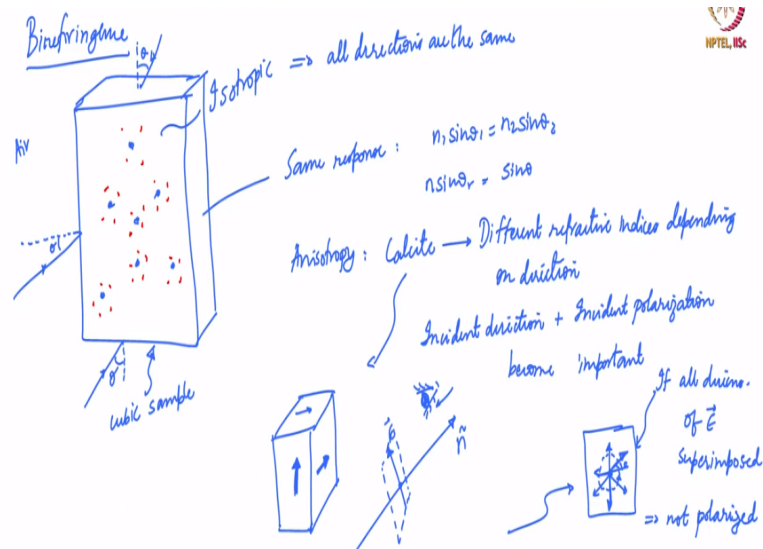 Birefringence
NPTEL, IISc
Isotropic => all directions are the same
Air
Same response : n₁sinθ₁ = n₂sinθ₂
nsinθᵣ = sinθ
Anisotropy : Calcite → Different refractive indices depending
on direction
Incident direction + Incident polarization
become important
cubic sample
ñ
If all direcns.
of E⃗
superimposed
=> not polarized
θ
θ
θ